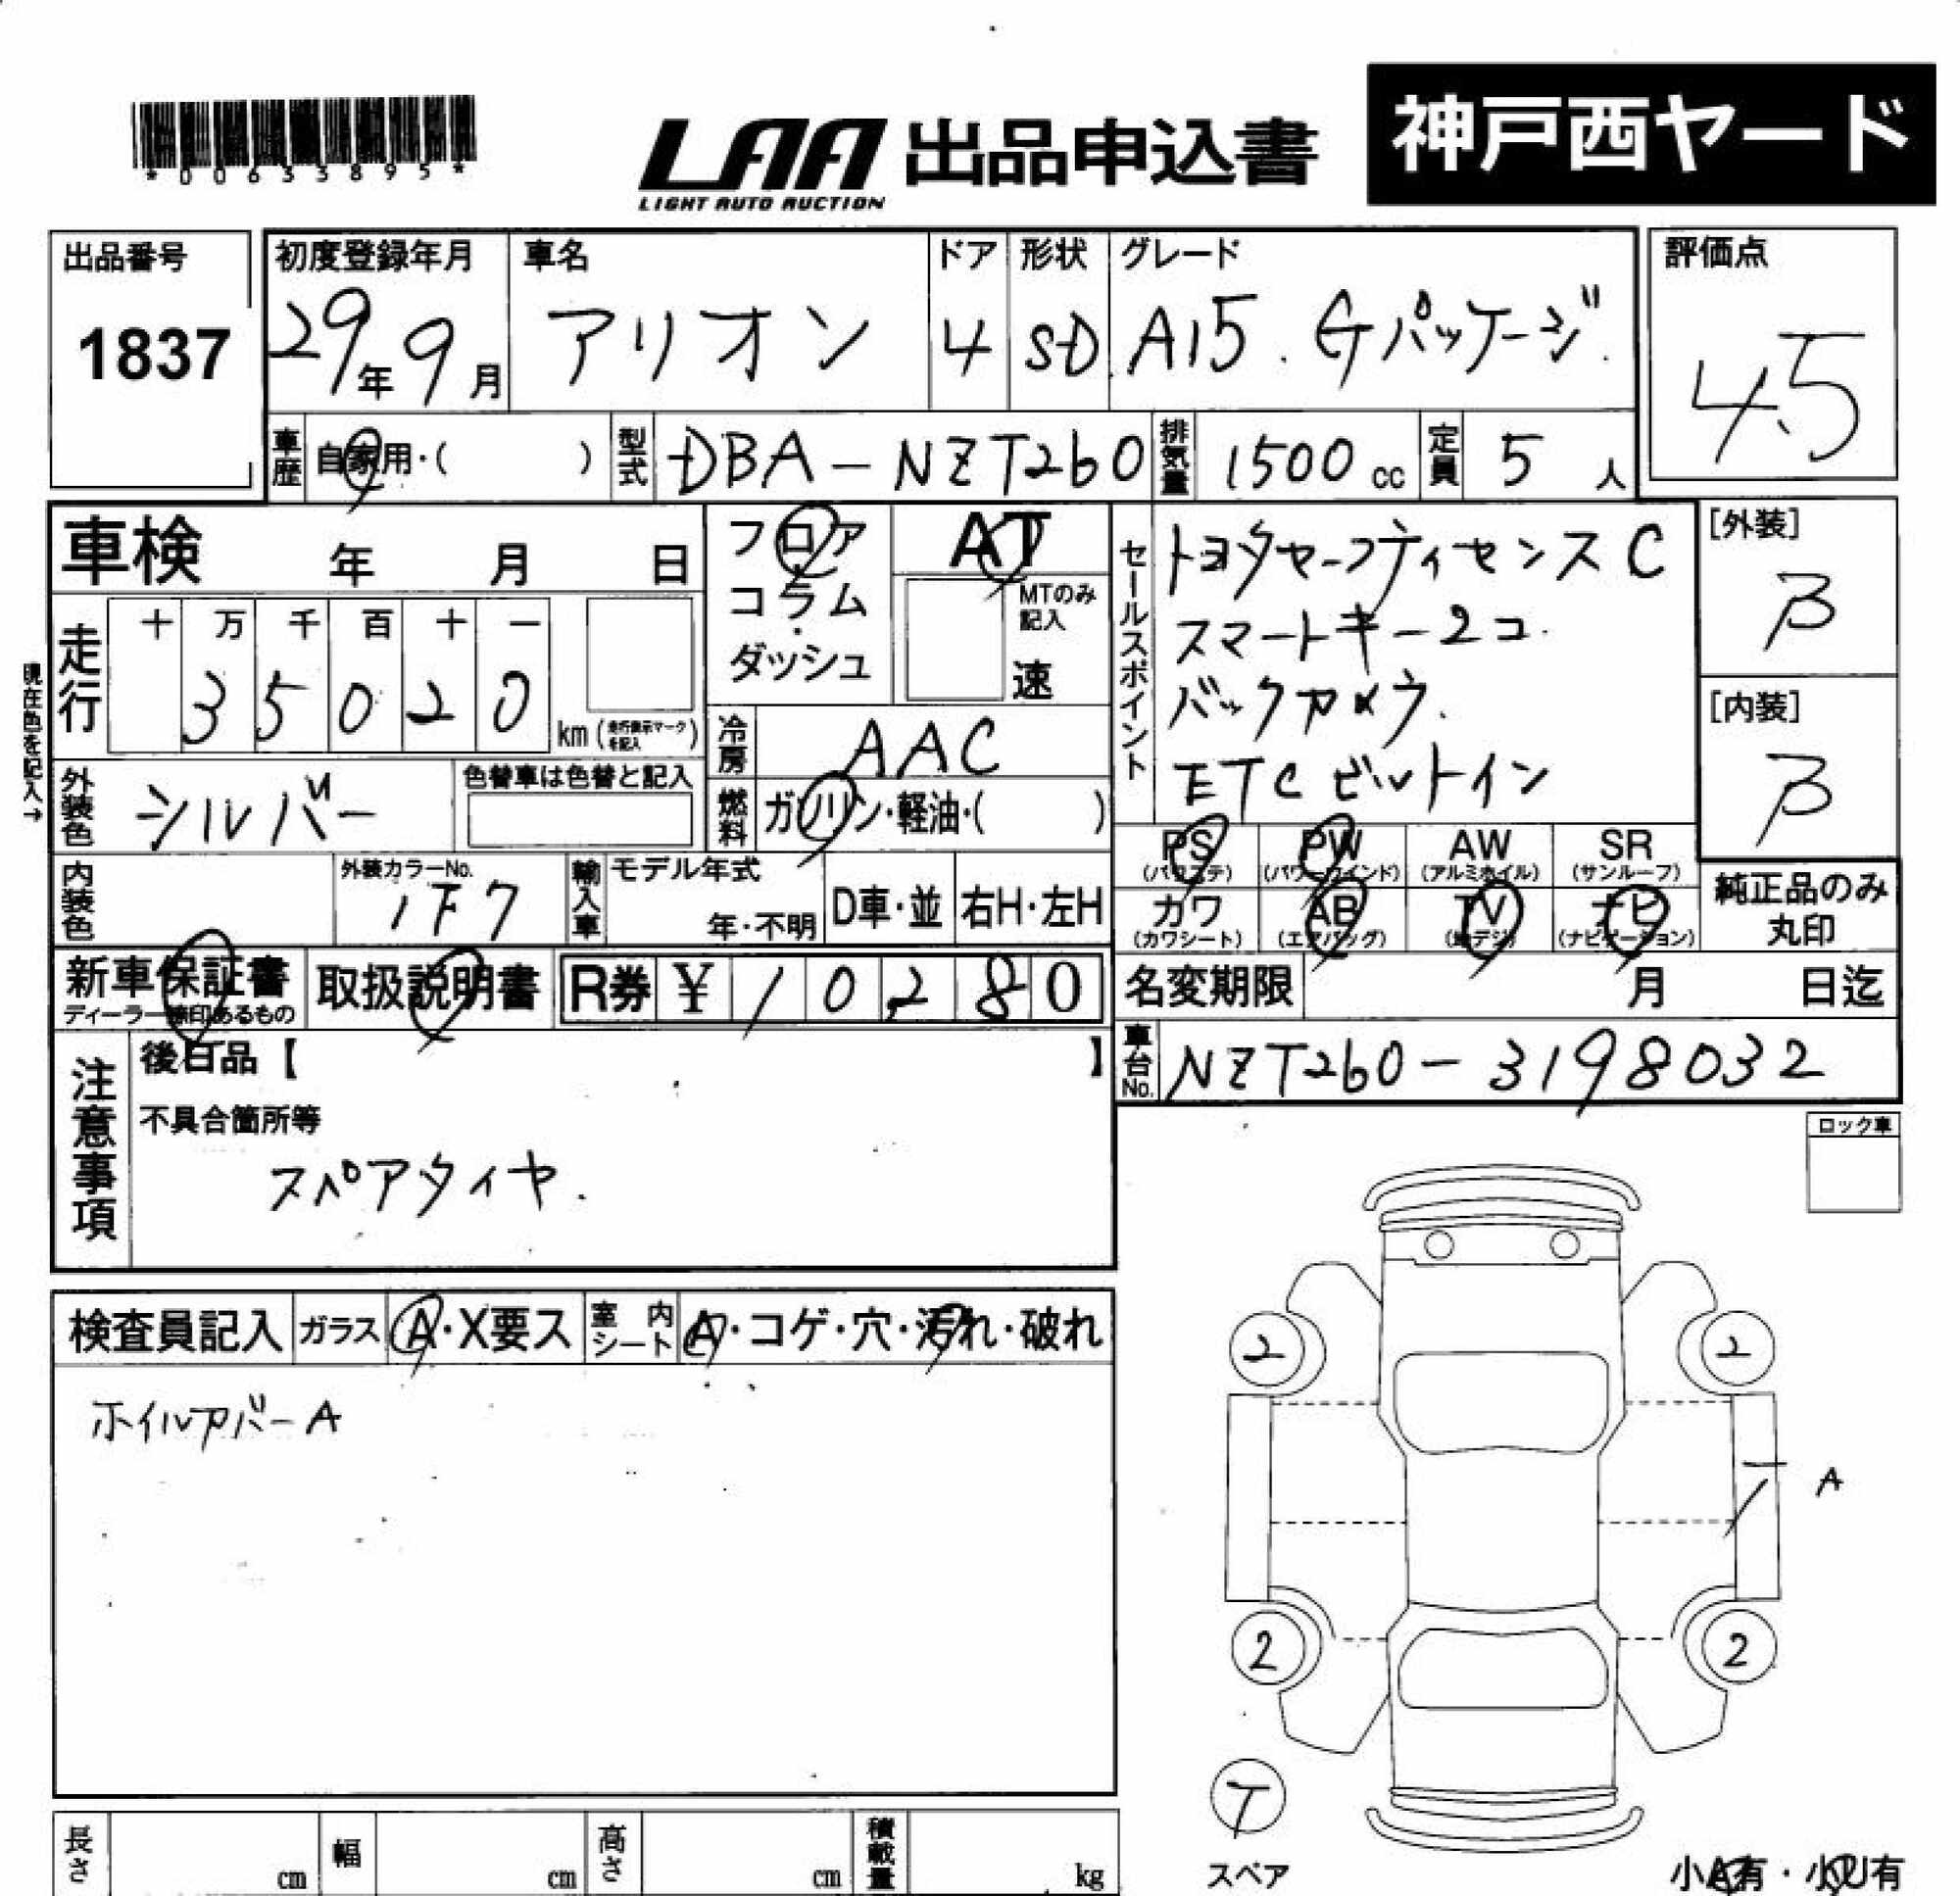 *00633895*
LAA 出品申込書
LIGHT AUTO AUCTION
神戸西ヤード
出品番号
1837
初度登録年月
29年9月
車名
アリオン
ドア
4
形状
SD
グレード
A15.Gパッケージ.
評価点
4.5
車歴
自家用・( )
型式
DBA-NZT260
排気量
1500cc
定員
5人
車検 年 月 日
フロア
コラム
ダッシュ
AT
MTのみ
記入
速
セールスポイント
トヨタセーフティセンスC
スマートキー2コ.
バックカメラ.
ETCビルトイン
[外装]
B
[内装]
B
現在色を記入→
走行
十 万 千 百 十 一
3 5 0 2 0
km(走行表示マークを記入)
冷房
AAC
燃料
ガソリン・軽油・( )
外装色
シルバー
色替車は色替と記入
内装色
外装カラーNo.
1F7
輸入車
モデル年式
年・不明
D車・並
右H・左H
PS
(パワステ)
PW
(パワーウインド)
AW
(アルミホイル)
SR
(サンルーフ)
カワ
(カワシート)
AB
(エアバッグ)
TV
(地デジ)
ナビ
(ナビゲーション)
純正品のみ
丸印
新車保証書
ディーラー捺印あるもの
取扱説明書
R券 ¥ 1 0 2 8 0
名変期限 月 日迄
車台No.
NZT260-3198032
注意事項
後日品【 】
不具合箇所等
スペアタイヤ.
ロック車
検査員記入
ガラス
A・X要ス
室内シート
A・コゲ・穴・汚れ・破れ
ホイルカバーA
2
2
A
2
2
T
スペア
小A有・小U有
長さ cm
幅 cm
高さ cm
積載量 kg